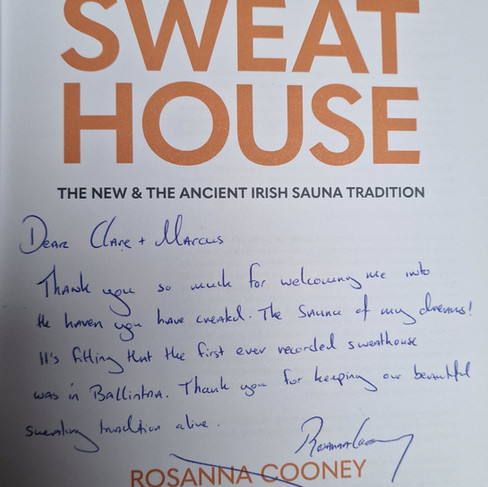 SWEAT
HOUSE
THE NEW & THE ANCIENT IRISH SAUNA TRADITION
Dear Clare + Marcus
Thank you so much for welcoming me into
the haven you have created. The sauna of my dreams!
It's fitting that the first ever recorded sweathouse
was in Ballintra. Thank you for keeping our beautiful
sweating tradition alive.
Rosanna Cooney
ROSANNA COONEY